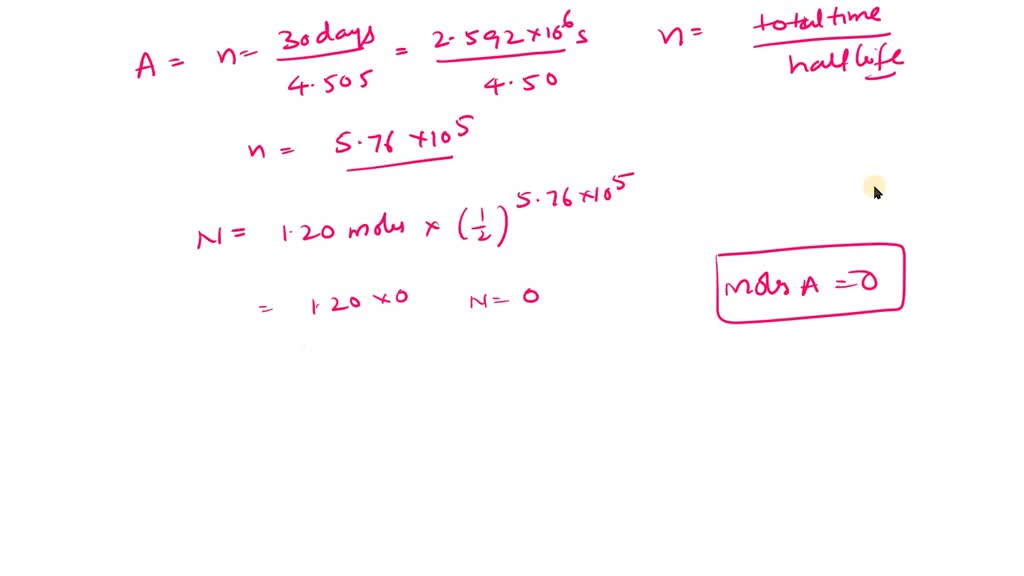 A = n = 30 days / 4.505 = 2.592 × 10⁶ s / 4.50 n = total time / half life
n = 5.76 × 10⁵
N = 1.20 moles × (1/2)^5.76 × 10⁵
= 1.20 × 0 N = 0
moles A = 0